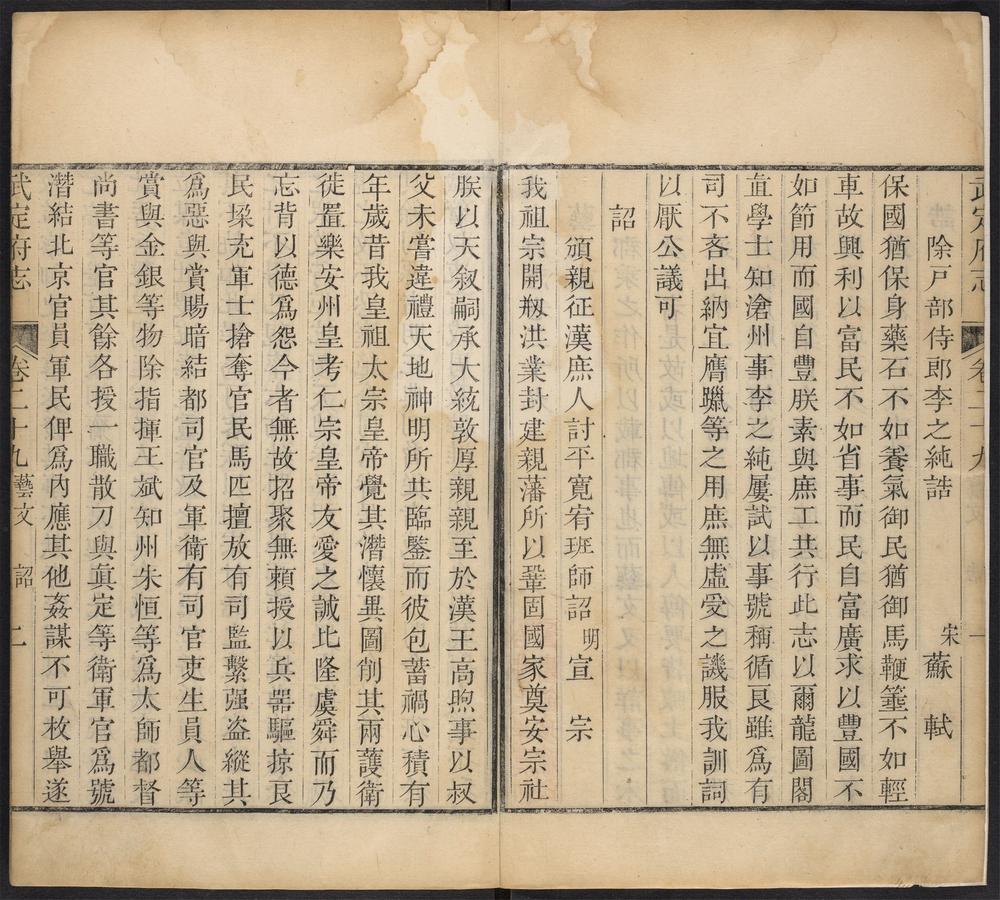 武定府志 卷二十九 藝文 一
除戸部侍郎李之純誥 宋蘇軾
保國猶保身藥石不如養氣御民猶御馬鞭箠不如輕
車故興利以富民不如省事而民自富廣求以豐國不
如節用而國自豐朕素與庶工共行此志以爾龍圖閣
直學士知滄州事李之純屢試以事號稱循良雖爲有
司不吝出納宜膺躐等之用庶無虛受之譏服我訓詞
以厭公議可
詔
頒親征漢庶人討平寬宥班師詔 明宣宗
我祖宗開剏洪業封建親藩所以鞏固國家奠安宗社
朕以天叙嗣承大統敦厚親親至於漢王高煦事以叔
父未嘗違禮天地神明所共臨鑒而彼包蓄禍心積有
年歲昔我皇祖太宗皇帝覺其潛懷異圖削其兩護衛
徙置樂安州皇考仁宗皇帝友愛之誠比隆虞舜而乃
忘背以德爲怨今者無故招聚無賴授以兵器驅掠良
民垜充軍士搶奪官民馬匹擅放有司監繫强盗縱其
爲惡與賞賜暗結都司官及軍衛有司官吏生員人等
賞與金銀等物除指揮王斌知州朱恒等爲太師都督
尚書等官其餘各授一職散刀與眞定等衛軍官爲號
潛結北京官員軍民俾爲內應其他姦謀不可枚舉遂
武定府志 卷二十九 藝文 詔 二